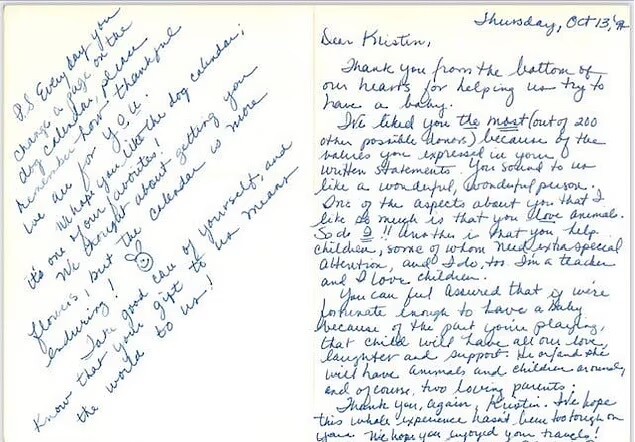 P.S. Everyday you
change a page on the
dog calendar, please
remember how thankful
we are for you.
We hope you like the dog calendar;
it's one of your favorites!
We thought about getting you
flowers, but the calendar is more
enduring!
Take good care of yourself, and
know that your gift to us means
the world to us!
Thursday, Oct 13,
Dear Kristin,
Thank you from the bottom of
our hearts for helping us try to
have a baby.
We liked you the most (out of 200
other possible donors) because of the
values you expressed in your
written statements. You sound to us
like a wonderful, wonderful person.
One of the aspects about you that I
like so much is that you love animals.
So do I!! Another is that you help
children, some of whom need extra special
attention, and I do, too. I'm a teacher
and I love children.
You can feel assured that if we're
fortunate enough to have a baby
because of the part you're playing,
that child will have all our love,
laughter and support. He or/and she
will have animals and children around,
and of course, two loving parents.
Thank you, again, Kristin. We hope
this whole experience hasn't been too tough on
you. We hope you enjoyed your travels!